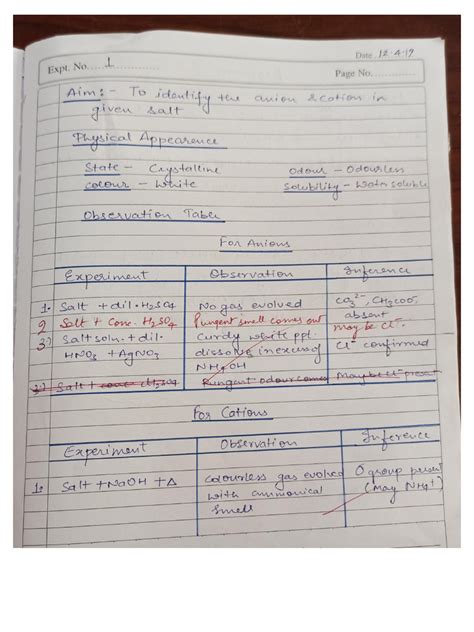 Expt. No. 1
Date 12.4.19
Page No.
Aim:- To identify the anion & cation in
given salt
Physical Appearence
State - Crystalline
Odour - Odourless
colour - White
Solubility - Water soluble
Observation Table
For Anions
Experiment Observation Inference
1. Salt + dil. H2SO4 No gas evolved CO3 2-, CH3COO-
absent
2 Salt + Conc. H2SO4 Pungent smell comes out may be Cl-
3.) Salt soln. + dil. Curdy white ppt. Cl- confirmed
HNO3 + AgNO3 dissolve in excess of
NH4OH
Salt + conc H2SO4 Pungent odour comes May be Cl- present
For Cations
Experiment Observation Inference
1. Salt + NaOH + Δ Colourless gas evolved O group present
with ammonical (May NH4+)
smell